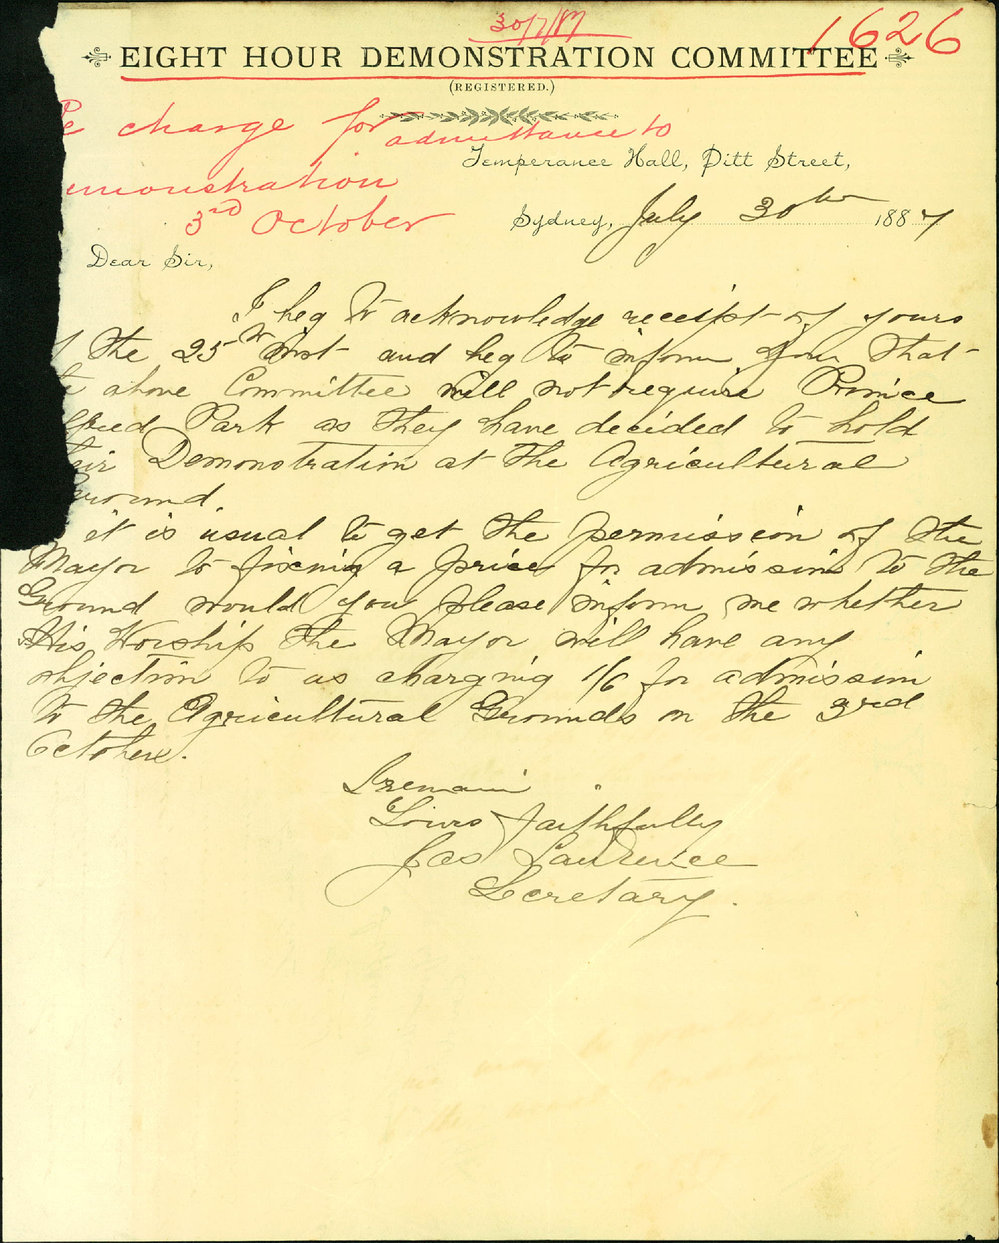 30/7/87
1626
EIGHT HOUR DEMONSTRATION COMMITTEE
(REGISTERED.)
charge for admittance to
emonstration
3rd October
Temperance Hall, Pitt Street,
Sydney, July 30th 1887
Dear Sir,
I beg to acknowledge receipt of yours
the 25th inst and beg to inform you that
above Committee will not require Prince
lfred Park as they have decided to hold
eir Demonstration at the Agricultural
Ground.
it is usual to get the permission of the
Mayor to fixing a price for admission to the
Ground would you please inform me whether
His Worship the Mayor will have any
objection to us charging 1/6 for admission
to the Agricultural Grounds on the 3rd
October.
I remain
Yours Faithfully
Jas Laurence
Secretary.